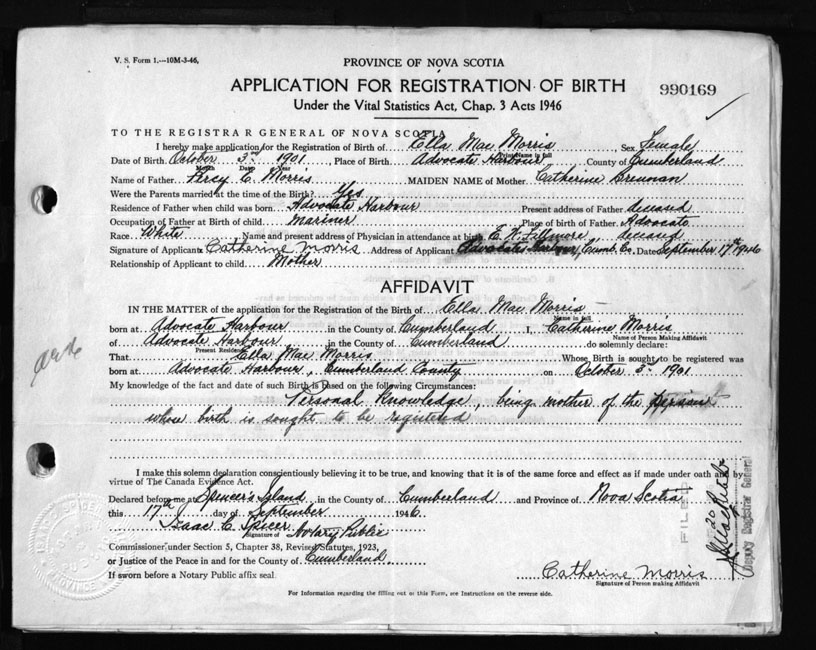 V. S. Form 1.---10M-3-46,
PROVINCE OF NOVA SCOTIA
APPLICATION FOR REGISTRATION OF BIRTH
990169
Under the Vital Statistics Act, Chap. 3 Acts 1946
TO THE REGISTRAR GENERAL OF NOVA SCOTIA
I hereby make application for the Registration of Birth of Ella Mae Morris Sex Female
Print Name in full
Date of Birth October 3rd 1901 Place of Birth Advocate Harbour County of Cumberland
Month Date Year
Name of Father Percy C. Morris MAIDEN NAME of Mother Catherine Drennan
Were the Parents married at the time of the Birth? Yes
Residence of Father when child was born Advocate Harbour Present address of Father deceased
Occupation of Father at Birth of child Mariner Place of birth of Father Advocate
Race White Name and present address of Physician in attendance at birth E. N. Fillmore deceased
Signature of Applicant Catherine Morris Address of Applicant Advocate Harbour, Cumb. Co. Date September 17th 1946
Relationship of Applicant to child Mother
AFFIDAVIT
IN THE MATTER of the application for the Registration of the Birth of Ella Mae Morris
Name in full
born at Advocate Harbour in the County of Cumberland I, Catherine Morris
Name of Person Making Affidavit
of Advocate Harbour in the County of Cumberland do solemnly declare:
Present Residence
That Ella Mae Morris Whose Birth is sought to be registered was
born at Advocate Harbour, Cumberland County on October 3rd 1901
My knowledge of the fact and date of such Birth is based on the following Circumstances:
Personal Knowledge, being mother of the person
whose birth is sought to be registered
I make this solemn declaration conscientiously believing it to be true, and knowing that it is of the same force and effect as if made under oath and by
virtue of The Canada Evidence Act.
Declared before me at Spencer's Island in the County of Cumberland and Province of Nova Scotia
this 17th day of September 1946
Isaac C. Spicer Notary Public
Signature of
Commissioner under Section 5, Chapter 38, Revised Statutes, 1923,
or Justice of the Peace in and for the County of Cumberland
If sworn before a Notary Public affix seal.
Catherine Morris
Signature of Person making Affidavit
For Information regarding the filling out of this Form, see Instructions on the reverse side.
FILED
Deputy Registrar General